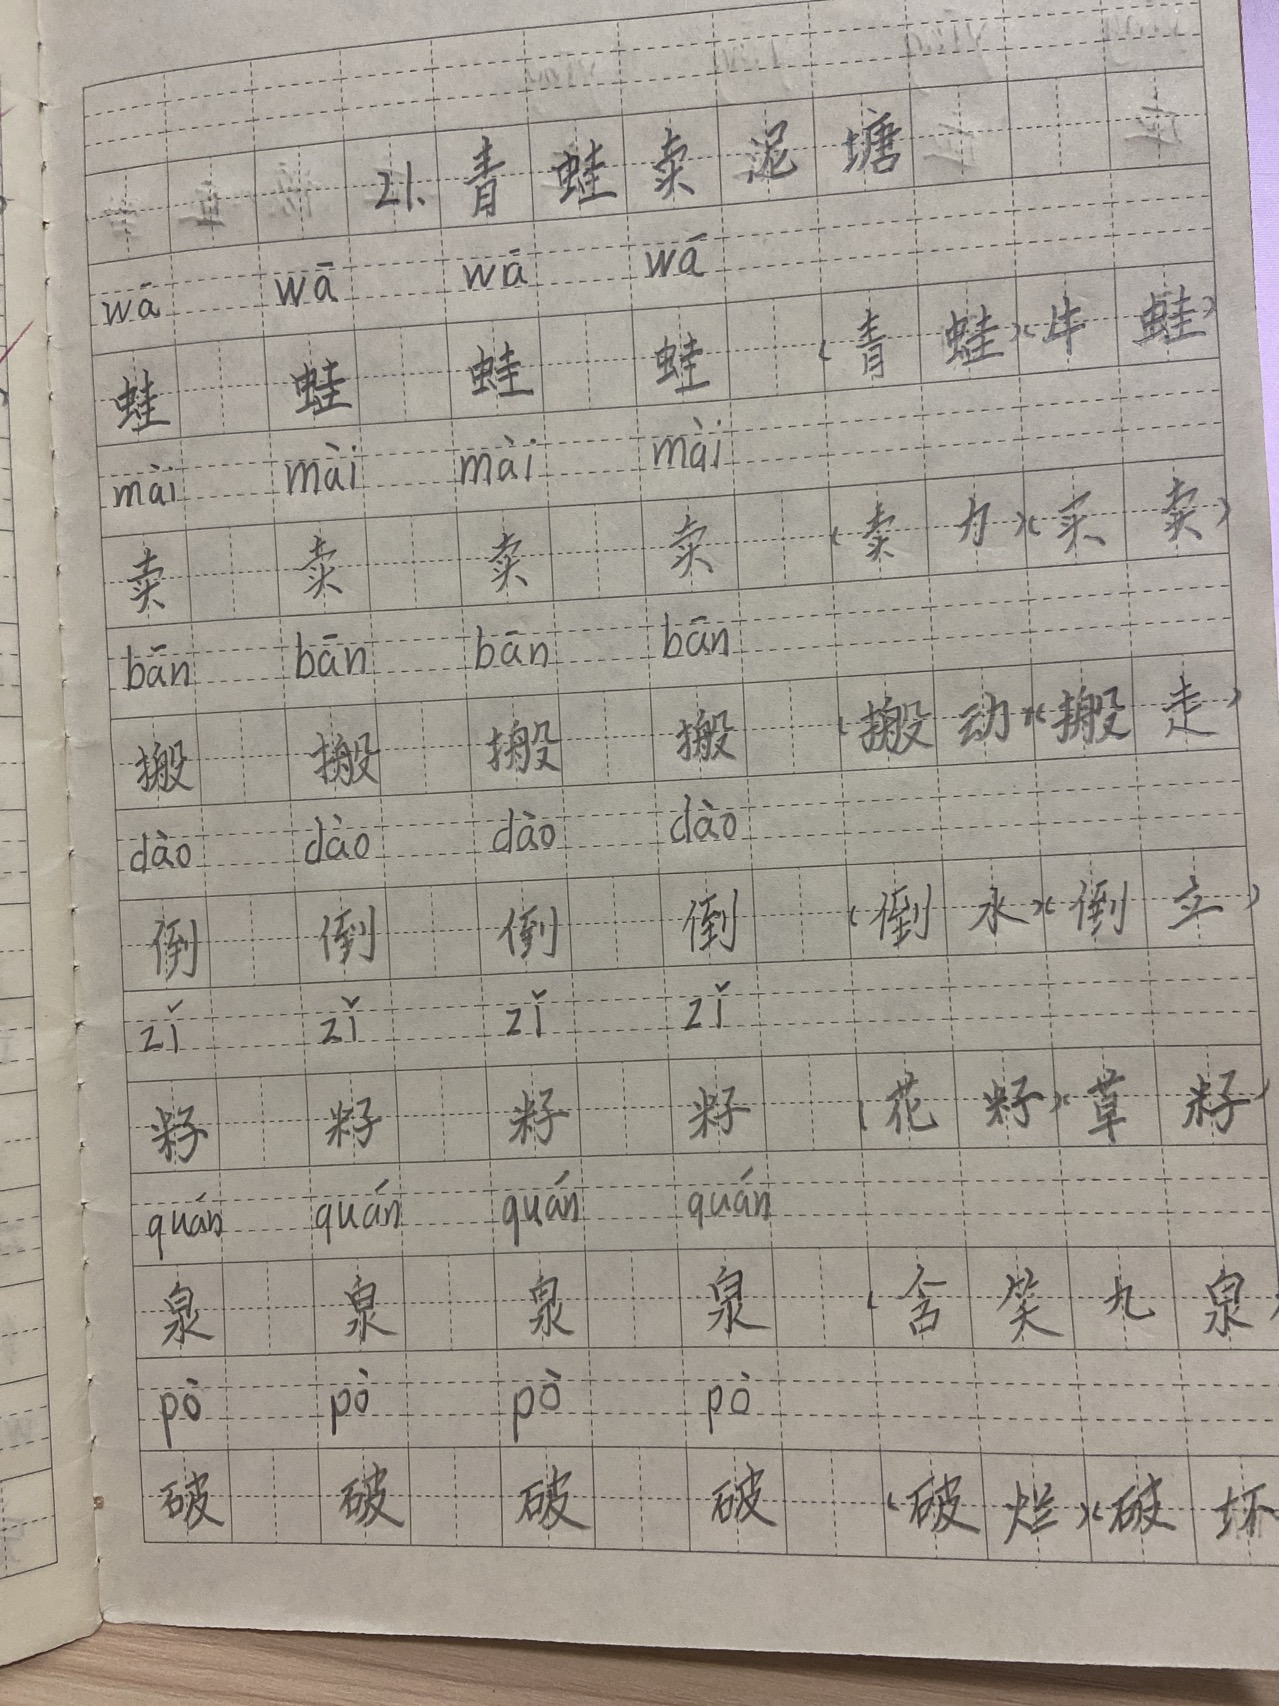 21.青蛙卖泥塘
wā wā wā wā
蛙 蛙 蛙 蛙 (青蛙)(牛蛙)
mài mài mài mài
卖 卖 卖 卖 (卖力)(买卖)
bān bān bān bān
搬 搬 搬 搬 (搬动)(搬走)
dào dào dào dào
倒 倒 倒 倒 (倒水)(倒立)
zǐ zǐ zǐ zǐ
籽 籽 籽 籽 (花籽)(草籽)
quán quán quán quán
泉 泉 泉 泉 (含笑九泉)
pò pò pò pò
破 破 破 破 (破烂)(破坏